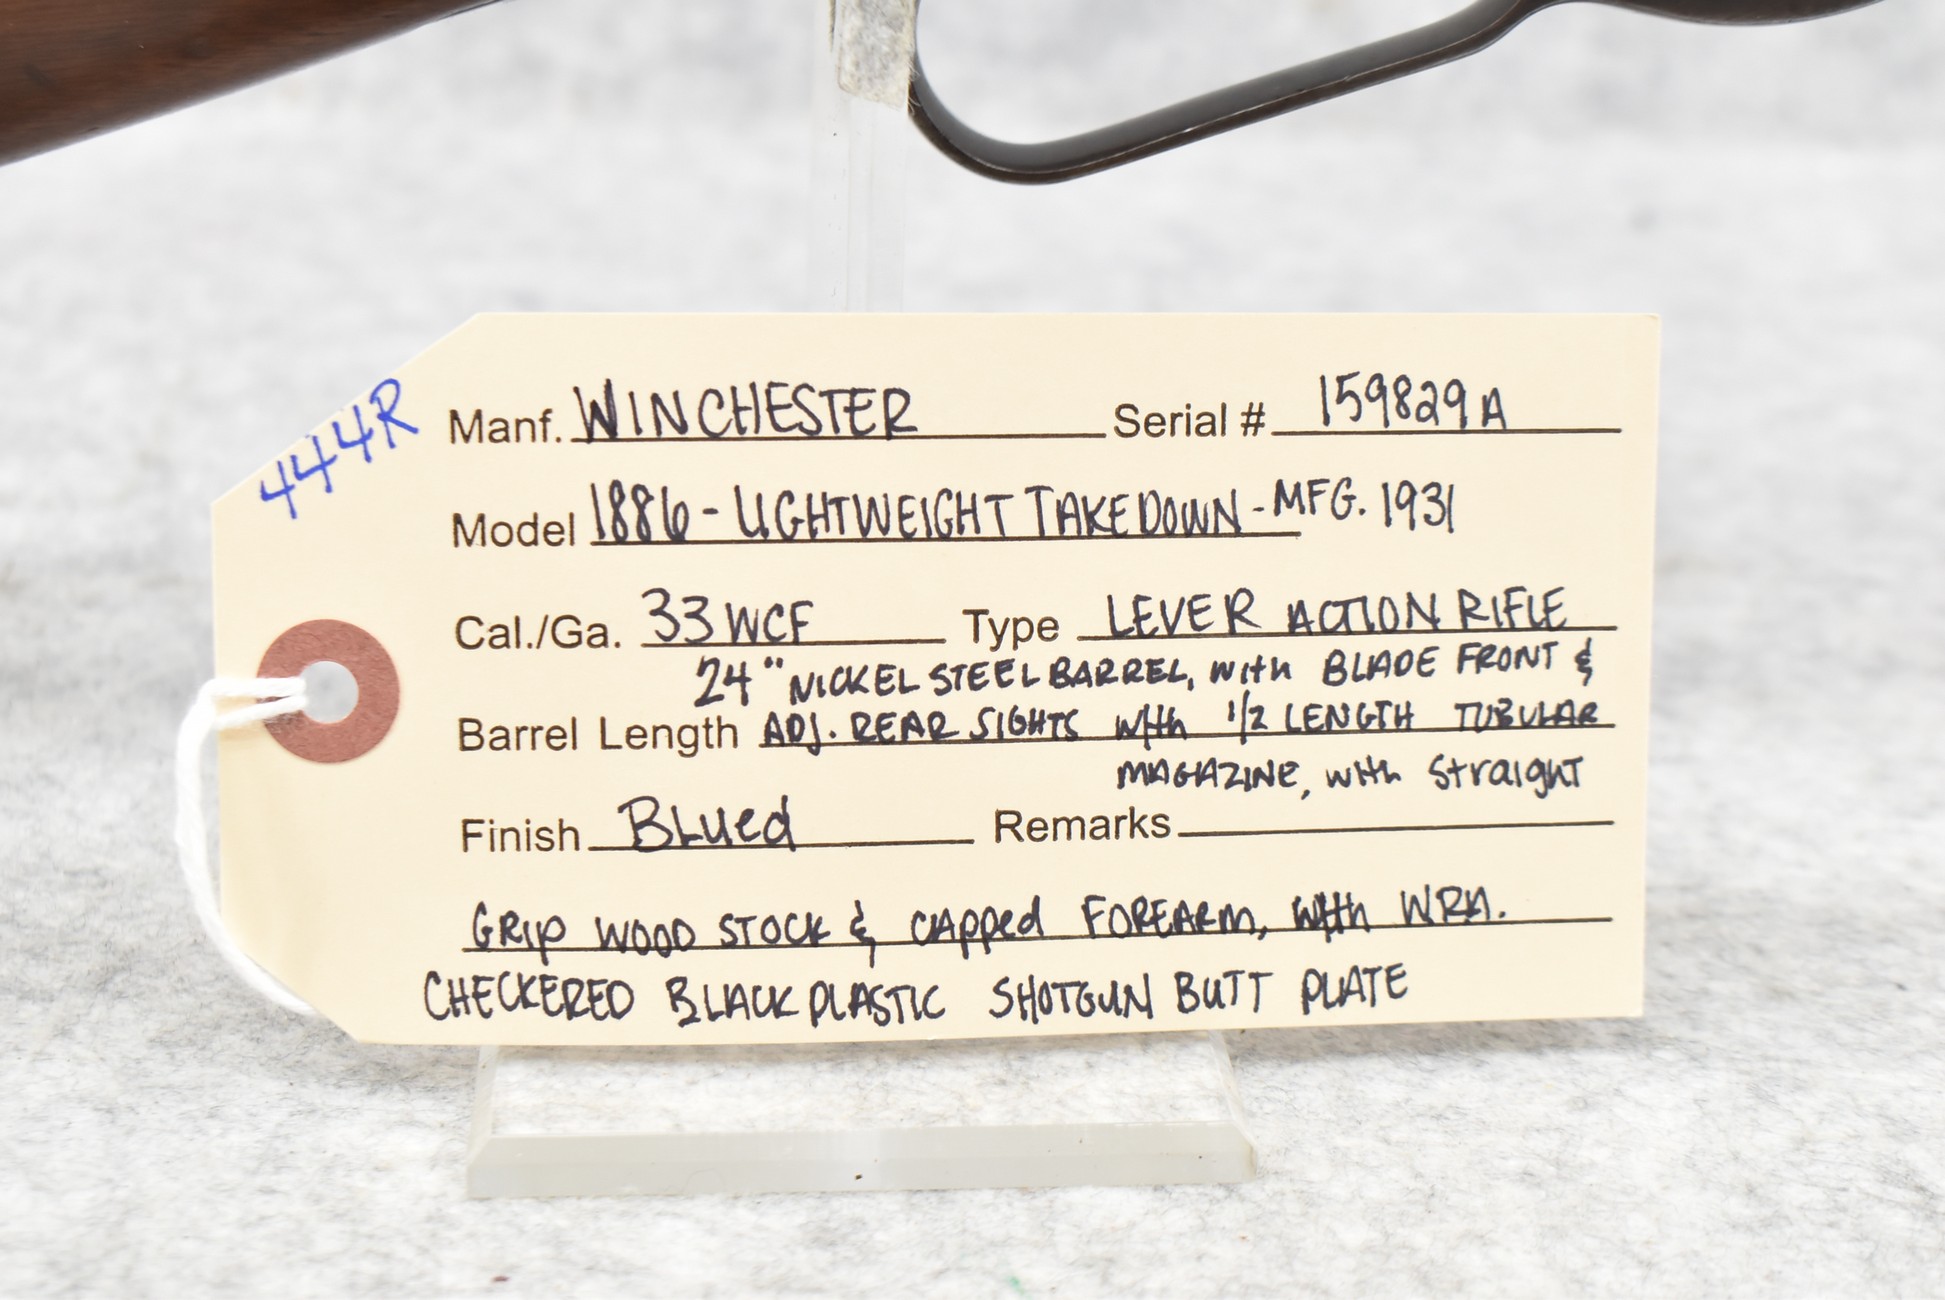 444R
Manf. WINCHESTER Serial # 159829A
Model 1886 - LIGHTWEIGHT TAKEDOWN - MFG. 1931
Cal./Ga. 33 WCF Type LEVER ACTION RIFLE
24" NICKEL STEEL BARREL, with BLADE FRONT &
Barrel Length ADJ. REAR SIGHTS with 1/2 LENGTH TUBULAR
MAGAZINE, with Straight
Finish BLued Remarks
GRip WOOD STOCK & CAPPed FOREARM, with WRA.
CHECKERED BLACK PLASTIC SHOTGUN BUTT PLATE